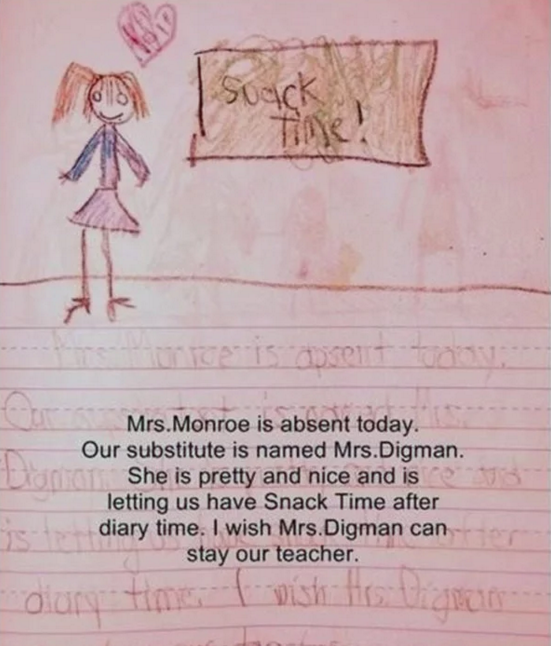 Snack
time!
Mrs Monroe is apsent today.
Our is named Mrs.
Mrs.Monroe is absent today.
Our substitute is named Mrs.Digman.
Digman and
She is pretty and nice and is
letting us have Snack Time after
diary time. I wish Mrs.Digman can
is letting after
stay our teacher.
diary time. I wish Mrs. Digman